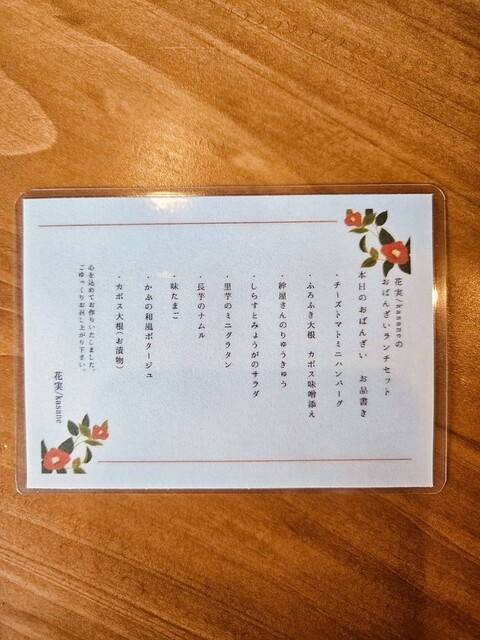 花実/kasaneの
おばんざいランチセット
本日のおばんざい　お品書き
・チーズトマトミニハンバーグ
・ふろふき大根　カボス味噌添え
・絆屋さんのりゅうきゅう
・しらすとみょうがのサラダ
・里芋のミニグラタン
・長芋のナムル
・味たまご
・かぶの和風ポタージュ
・カボス大根(お漬物)
心を込めてお作りいたしました。
ごゆっくりお召し上がり下さい。
花実/kasane